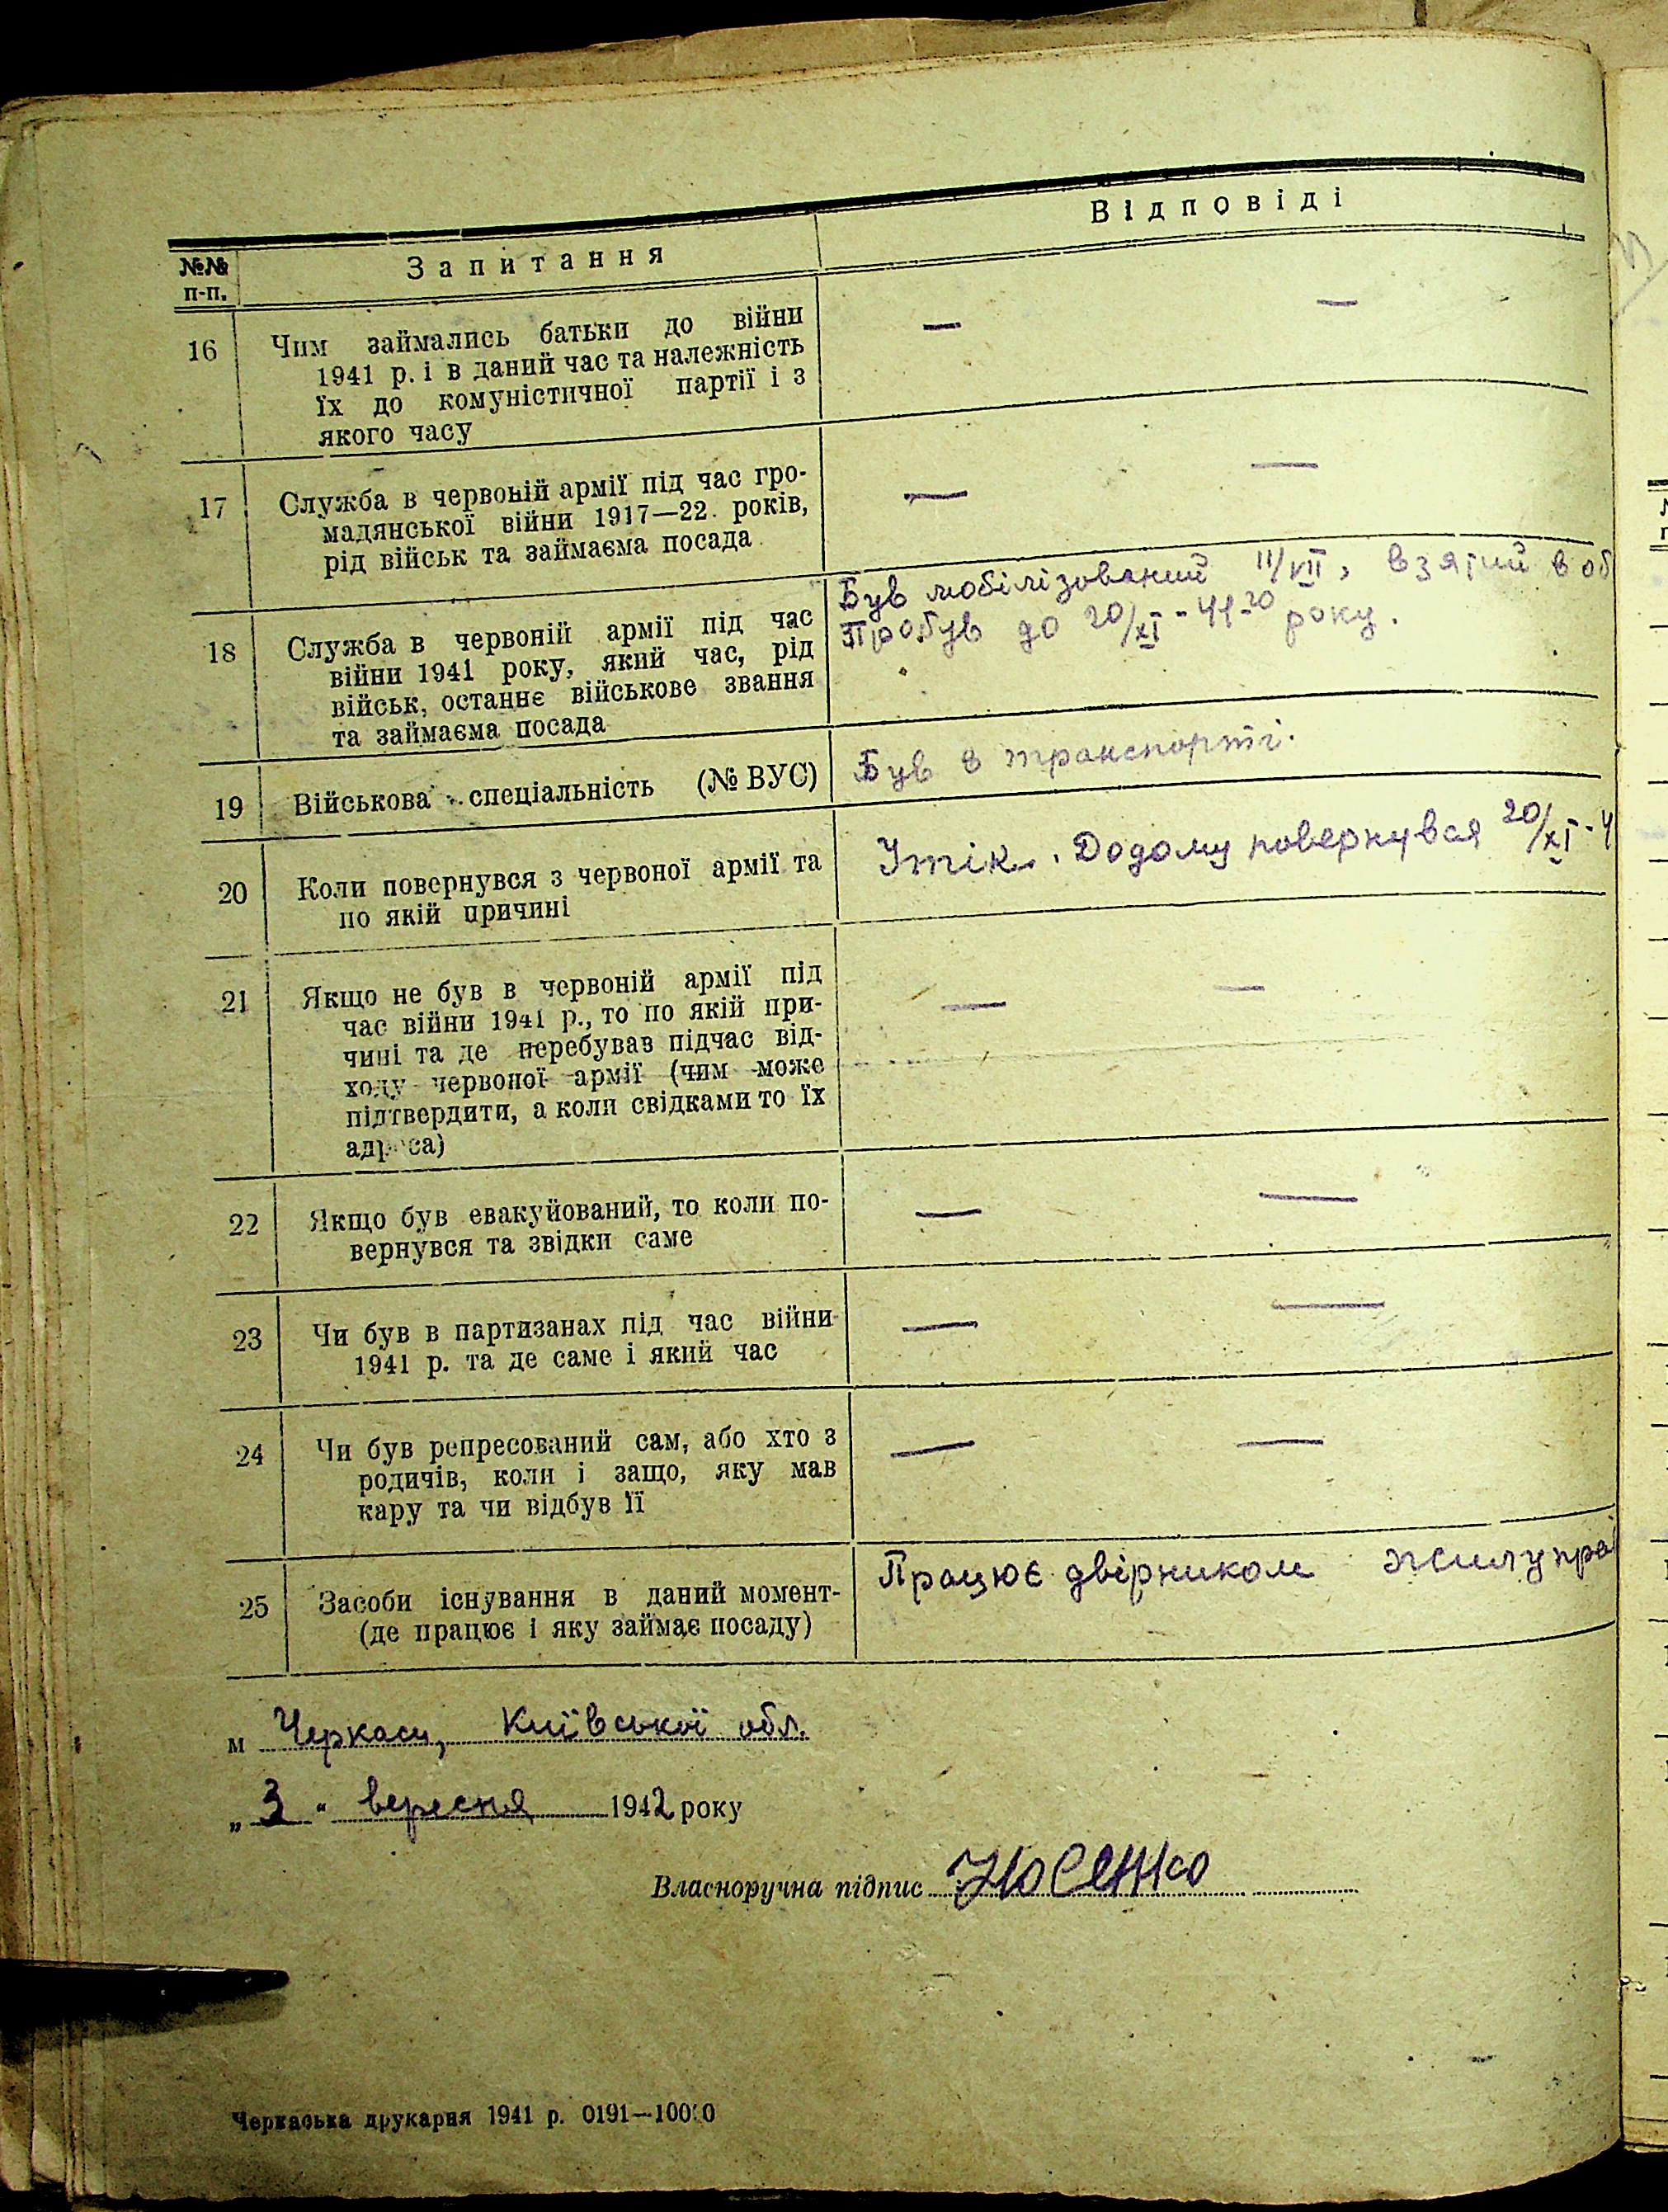 №№ п-п. Запитання Відповіді
16 Чим займались батьки до війни — —
1941 р. і в даний час та належність
їх до комуністичної партії і з
якого часу
17 Служба в червоній армії під час гро- — —
мадянської війни 1917—22 років,
рід військ та займаєма посада
Був мобілізований 11/VII, взятий в об
Пробув до 20/XI - 41-20 року.
18 Служба в червоній армії під час
війни 1941 року, який час, рід
військ, останнє військове звання
та займаєма посада
19 Військова спеціальність (№ ВУС) Був в транспорті.
20 Коли повернувся з червоної армії та Утік. Додому повернувся 20/XI - 4
по якій причині
21 Якщо не був в червоній армії під — —
час війни 1941 р., то по якій при-
чині та де перебував підчас від-
ходу червоної армії (чим може
підтвердити, а коли свідками то їх
адреса)
22 Якщо був евакуйований, то коли по- — —
вернувся та звідки саме
23 Чи був в партизанах під час війни — —
1941 р. та де саме і який час
24 Чи був репресований сам, або хто з — —
родичів, коли і защо, яку мав
кару та чи відбув її
25 Засоби існування в даний момент- Працює двірником жилупра
(де працює і яку займає посаду)
м Черкаси, Київської обл.
„ 3 " вересня 1942 року
Власноручна підпис Носенко
Черкаська друкарня 1941 р. 0191—10000